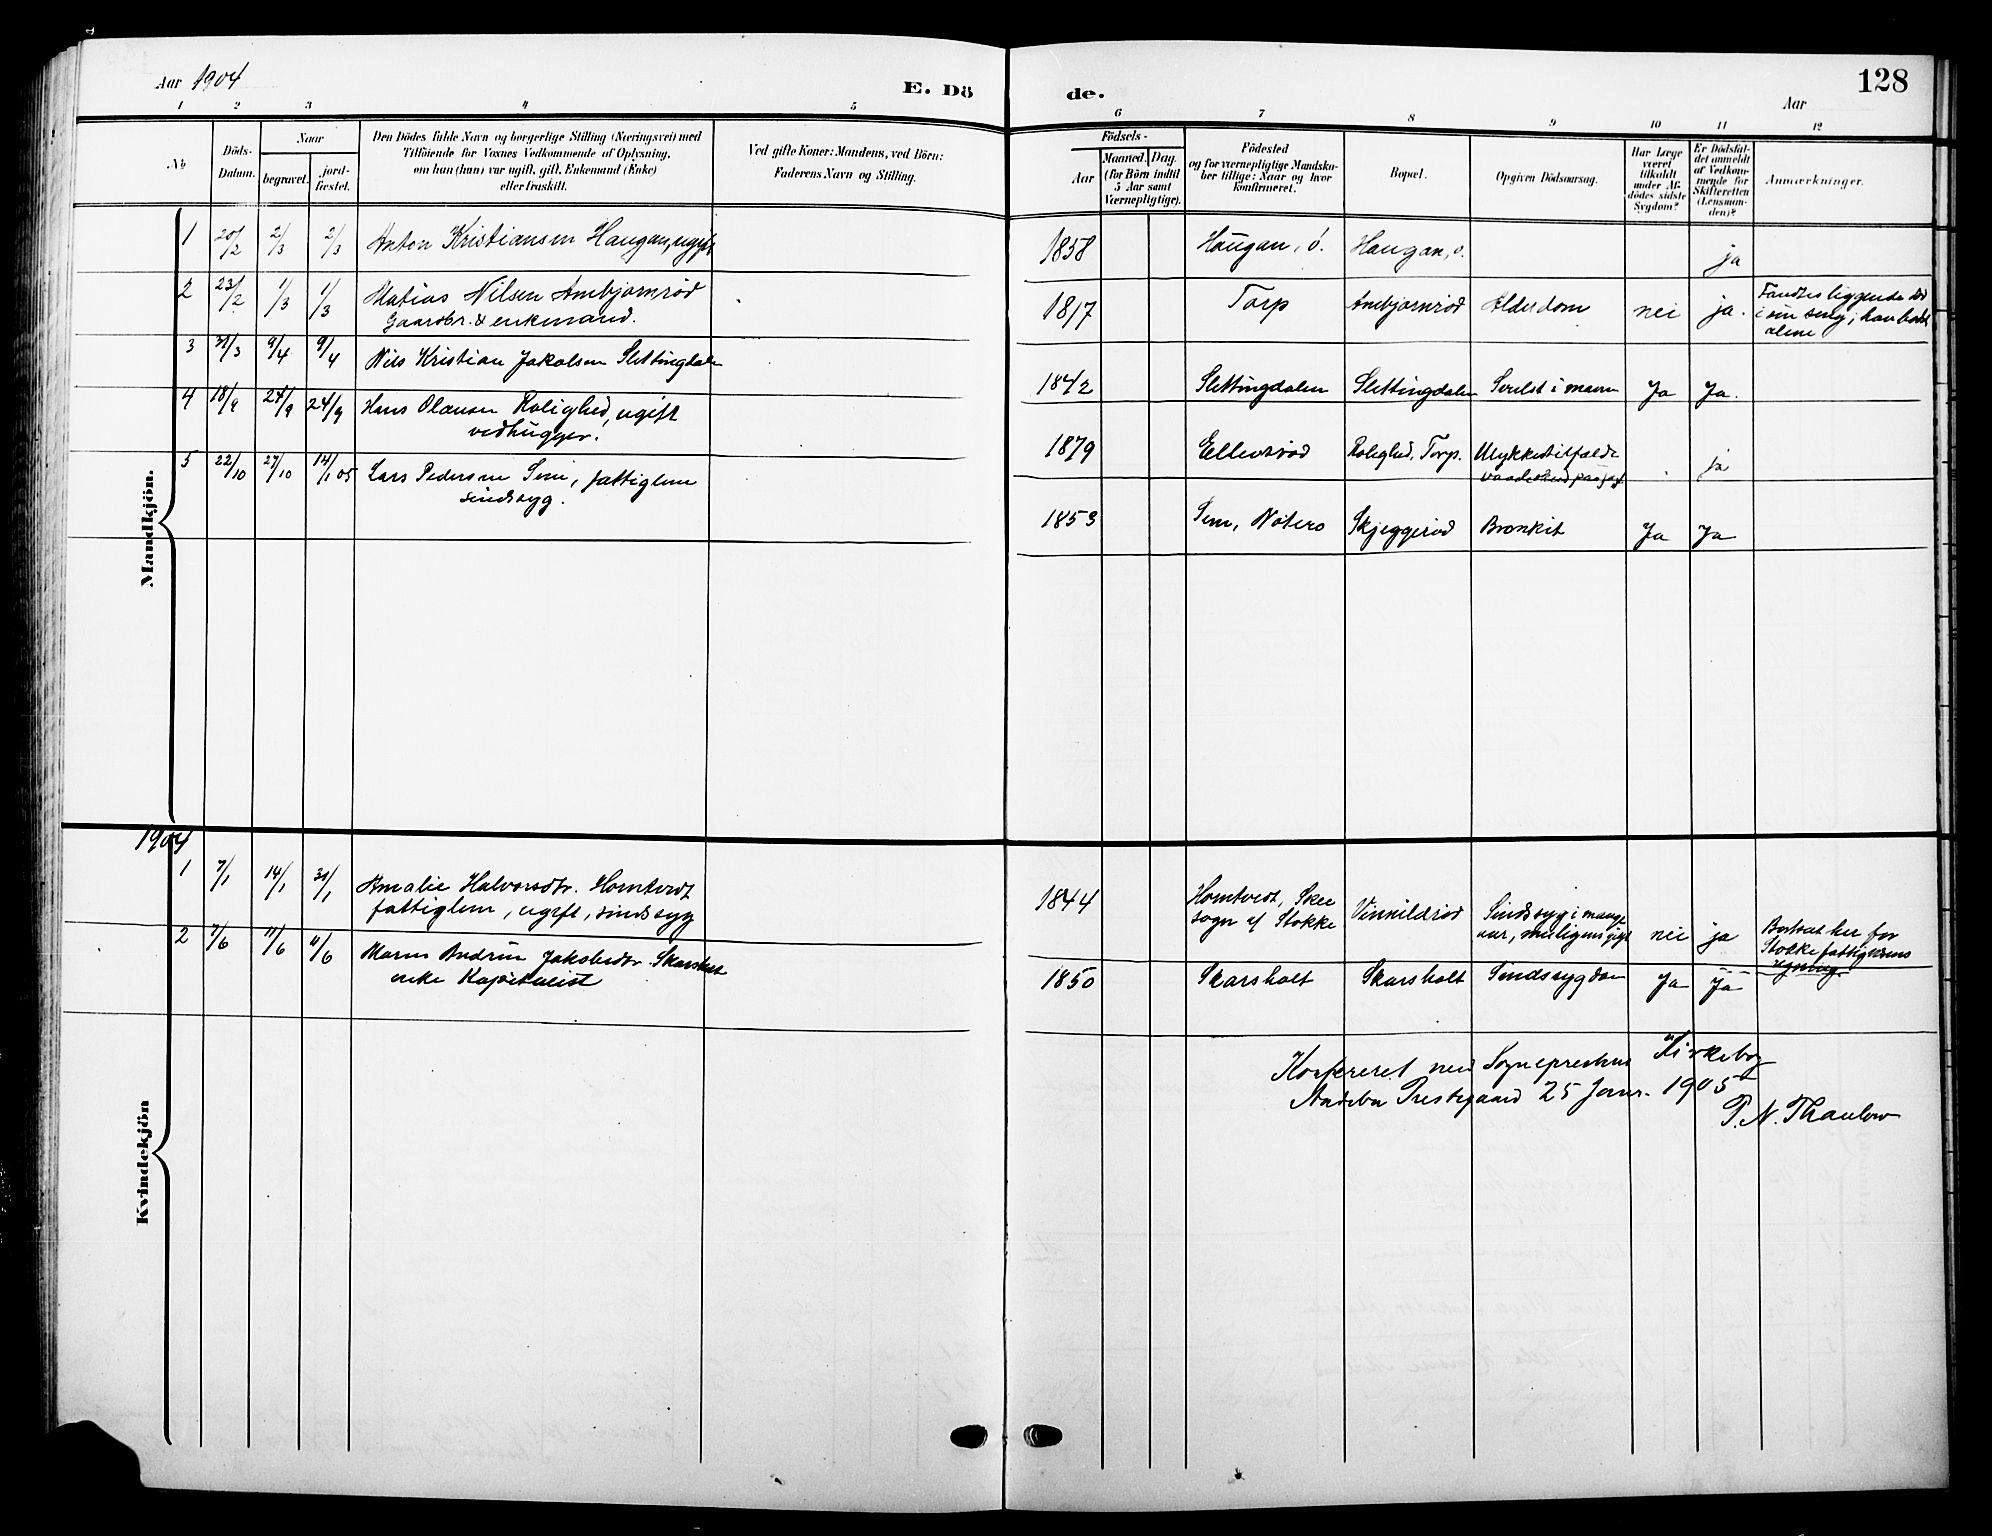 Aar 1904
E. Dö
de.
128
Aar
1 2 3 4 5 6 7 8 9 10 11 12
No
Döds-Datum.
Naar
begravet.
jord-fæstet.
Den Dödes fulde Navn og borgerlige Stilling (Næringsvei) med
Tilföiende for Voxnes Vedkommende af Oplysning,
om han (hun) var ugift, gift, Enkemand (Enke)
eller fraskilt.
Ved gifte Koner: Mandens, ved Börn:
Faderens Navn og Stilling.
Födsels-
Aar
Maaned. Dag.
(for Börn indtil
5 Aar samt
Værnepligtige).
Födested
og for værnepligtige Mandska-
ber tillige: Naar og hvor
konfirmeret.
Bopæl.
Opgiven Dödsaarsag.
Har Læge
været
tilkaldt
under Af-
dödes sidste
Sygdom?
Er Dödsfal-
det anmeldt
af Vedkom-
mende for
Skifteretten
(Lensman-
den)?
Anmærkninger.
Mandkjön.
1 20/2 2/3 2/3 Anton Kristiansen Haugan, ugift 1858 Haugan, ö. Haugan, ö. ja
2 23/2 1/3 1/3 Matias Nilsen Ambjørnrød
Gaardbr. & enkemand.
1817 Torp Ambjørnrød Alderdom nei ja.
Fandtes liggende død
i sin seng; han bodde
alene
3 31/3 9/4 9/4 Nils Kristian Jakobsen Slettingdalen
1842 Slettingdalen Slettingdalen Svulst i maven Ja Ja.
4 18/9 24/9 24/9 Hans Olausen Rolighed, ugift
vedhugger.
1879 Ellevsrød Rolighed, Torp. Ulykkestilfælde
vaadeskud paa jagt
ja
5 22/10 27/10 14/1 05 Lars Pedersen Sem, fattiglem
sindssyg.
1853 Sem, Nøtterø Skjeggerød Bronkit Ja Ja
1904
Kvindekjön
1 7/1 14/1 31/1 Amalie Halvorsdtr. Homtvedt
fattiglem, ugift, sindssyg
1844 Homtvedt, Skee
sogn af Stokke
Vinnildrød
Sindssyg i mange
aar, muligens gigt
nei ja
Bortsat her for
Stokke fattigvæsens
regning.
2 7/6 11/6 11/6 Maren Andrine Jakobsdtr. Skarsholt
enke Kapitalist
1850 Skarsholt Skarsholt Sindssygdom Ja Ja
Konfereret med Sogneprestens Kirkebog
Andebu Prestegaard 25 Janr. 1905
P. N. Thaulow